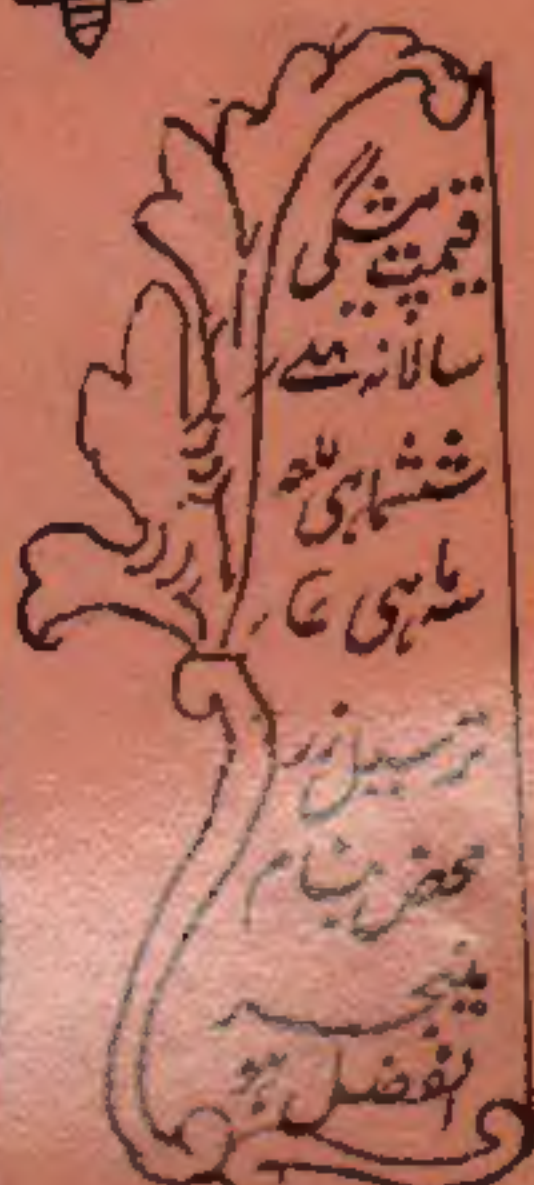 قیمت پیشگی
سالانہ
ششماہی
سہ ماہی
ترسیل زر
محض بنام
مینجر
الفضل ہو